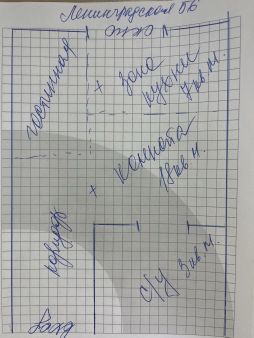 Ленинградская 56
окно
гостинная
зона
кухни
7 кв. м.
комната
18 кв. м.
коридор
с/у 3 кв. м.
Вход